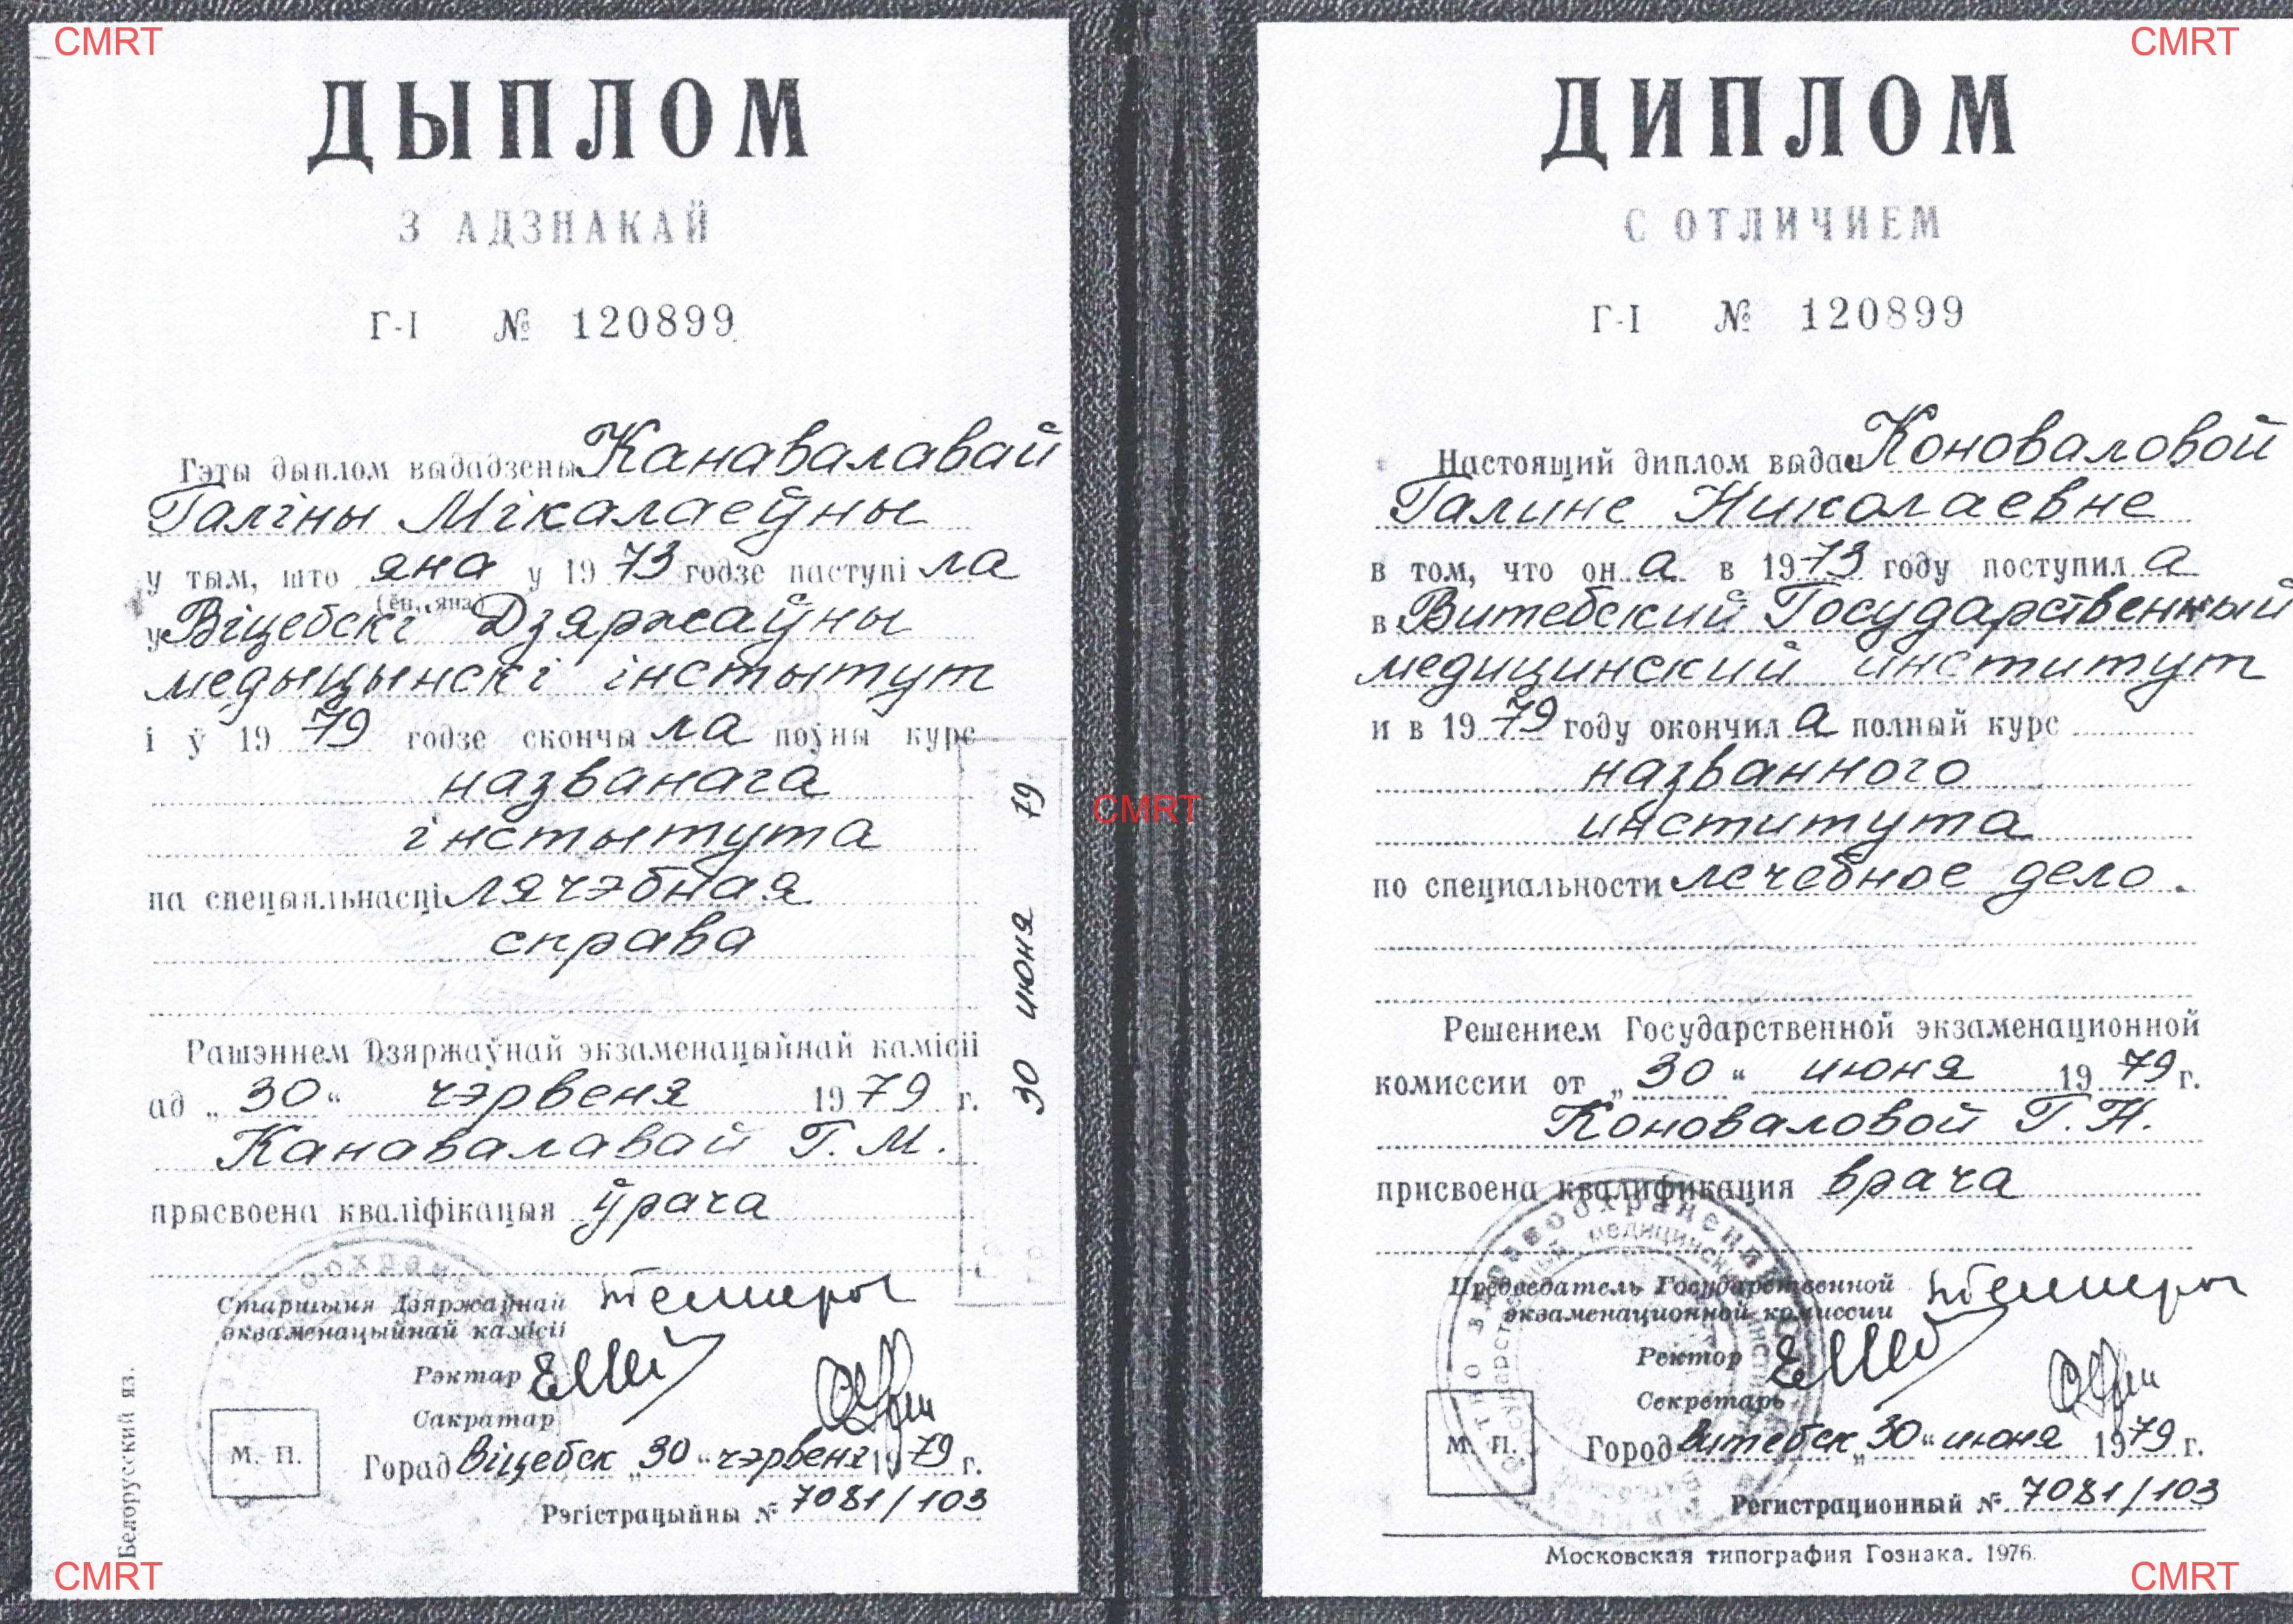 CMRT
CMRT
ДЫПЛОМ
З АДЗНАКАЙ
Г-I № 120899
Гэты дыплом выдадзены Канавалавай
Галіны Мікалаеўны
у тым, што яна у 1973 годзе паступіла
(ён, яна)
у Віцебскі Дзяржаўны
медыцынскі інстытут
і ў 1979 годзе скончыла поўны курс
названага
інстытута
па спецыяльнасці лячэбная
справа
Рашэннем Дзяржаўнай экзаменацыйнай камісіі
ад „30“ чэрвеня 1979 г.
Канавалавай Г. М.
прысвоена кваліфікацыя ўрача
Старшыня Дзяржаўнай
экзаменацыйнай камісіі
Рэктар
Сакратар
М. П.
Горад Віцебск „30“ чэрвеня 1979 г.
Рэгістрацыйны № 7081/103
Белорусский яз.
30 июня 79
CMRT
ДИПЛОМ
С ОТЛИЧИЕМ
Г-I № 120899
Настоящий диплом выдан Коноваловой
Галине Николаевне
в том, что она в 1973 году поступила
в Витебский Государственный
медицинский институт
и в 1979 году окончила полный курс
названного
института
по специальности лечебное дело.
Решением Государственной экзаменационной
комиссии от „30“ июня 1979 г.
Коноваловой Г. Н.
присвоена квалификация врача
Председатель Государственной
экзаменационной комиссии
Ректор
Секретарь
М. П.
Город Витебск „30“ июня 1979 г.
Регистрационный № 7081/103
Московская типография Гознака. 1976.
CMRT
CMRT